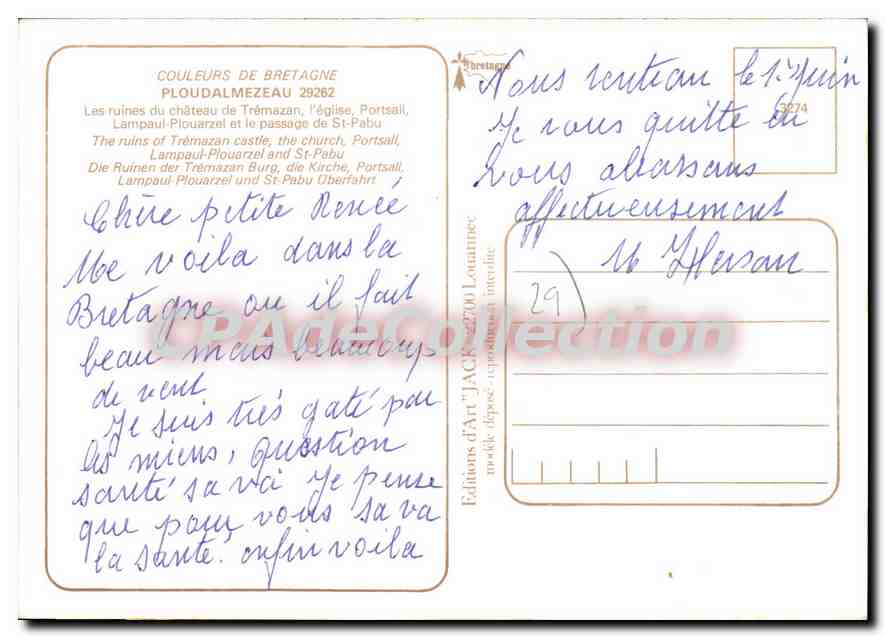 COULEURS DE BRETAGNE
PLOUDALMEZEAU 29262
Les ruines du château de Trémazan, l'église, Portsall,
Lampaul-Plouarzel et le passage de St-Pabu
The ruins of Trémazan castle, the church, Portsall,
Lampaul-Plouarzel and St-Pabu
Die Ruinen der Trémazan Burg, die Kirche, Portsall,
Lampaul-Plouarzel und St-Pabu Überfahrt
Chère petite Renée
Me voila dans la
Bretagne ou il fait
beau mais beaucoup
de vent
Je suis très gaté par
les miens, question
santé sa va Je pense
que pour vous sa va
la santé. enfin voila
Editions d'Art "JACK" 22700 Louannec
modèle déposé - reproduction interdite
bretagne
3274
Nous rentrau le 1er Juin
Je vous quitte en
vous abassans
affectueusement
29
CPAdeCollection